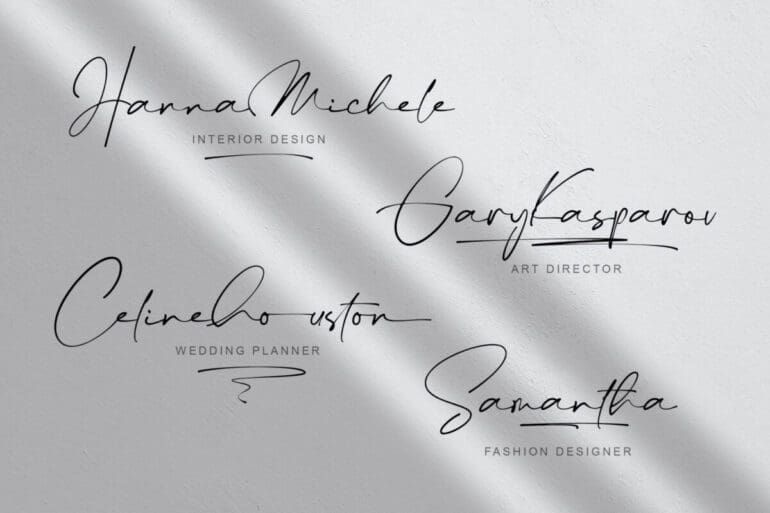 Hanna Michele
INTERIOR DESIGN
Gary Kasparov
ART DIRECTOR
Celinehouston
WEDDING PLANNER
Samantha
FASHION DESIGNER